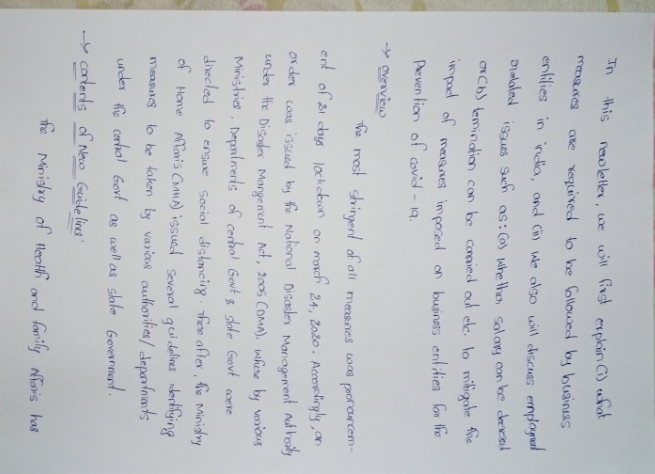 In this newsletter, we will first explain (i) what
measures are required to be followed by business
entities in india, and (ii) we also will discuss employment
related issues such as: (a) whether salary can be decreased
or (b) termination can be carried out etc. to mitigate the
impact of measures imposed on business entities for the
Prevention of covid-19.
→ overview
The most stringent of all measures was pronouncem-
ent of 21 days lockdown on march 24, 2020. Accordingly, an
order was issued by the National Disaster Management Authority
under the Disaster Mangement Act, 2005 (DMA), whose by various
Ministries, Departments of central Govt & state Govt were
directed to ensure social distancing. There after, the Ministry
of Home Affairs (MHA) issued several guidelines identifying
measures to be taken by various authorities/departments
under the central Govt as well as state Government.
→ contents of New Guidelines.
The Ministry of Health and family Affairs has